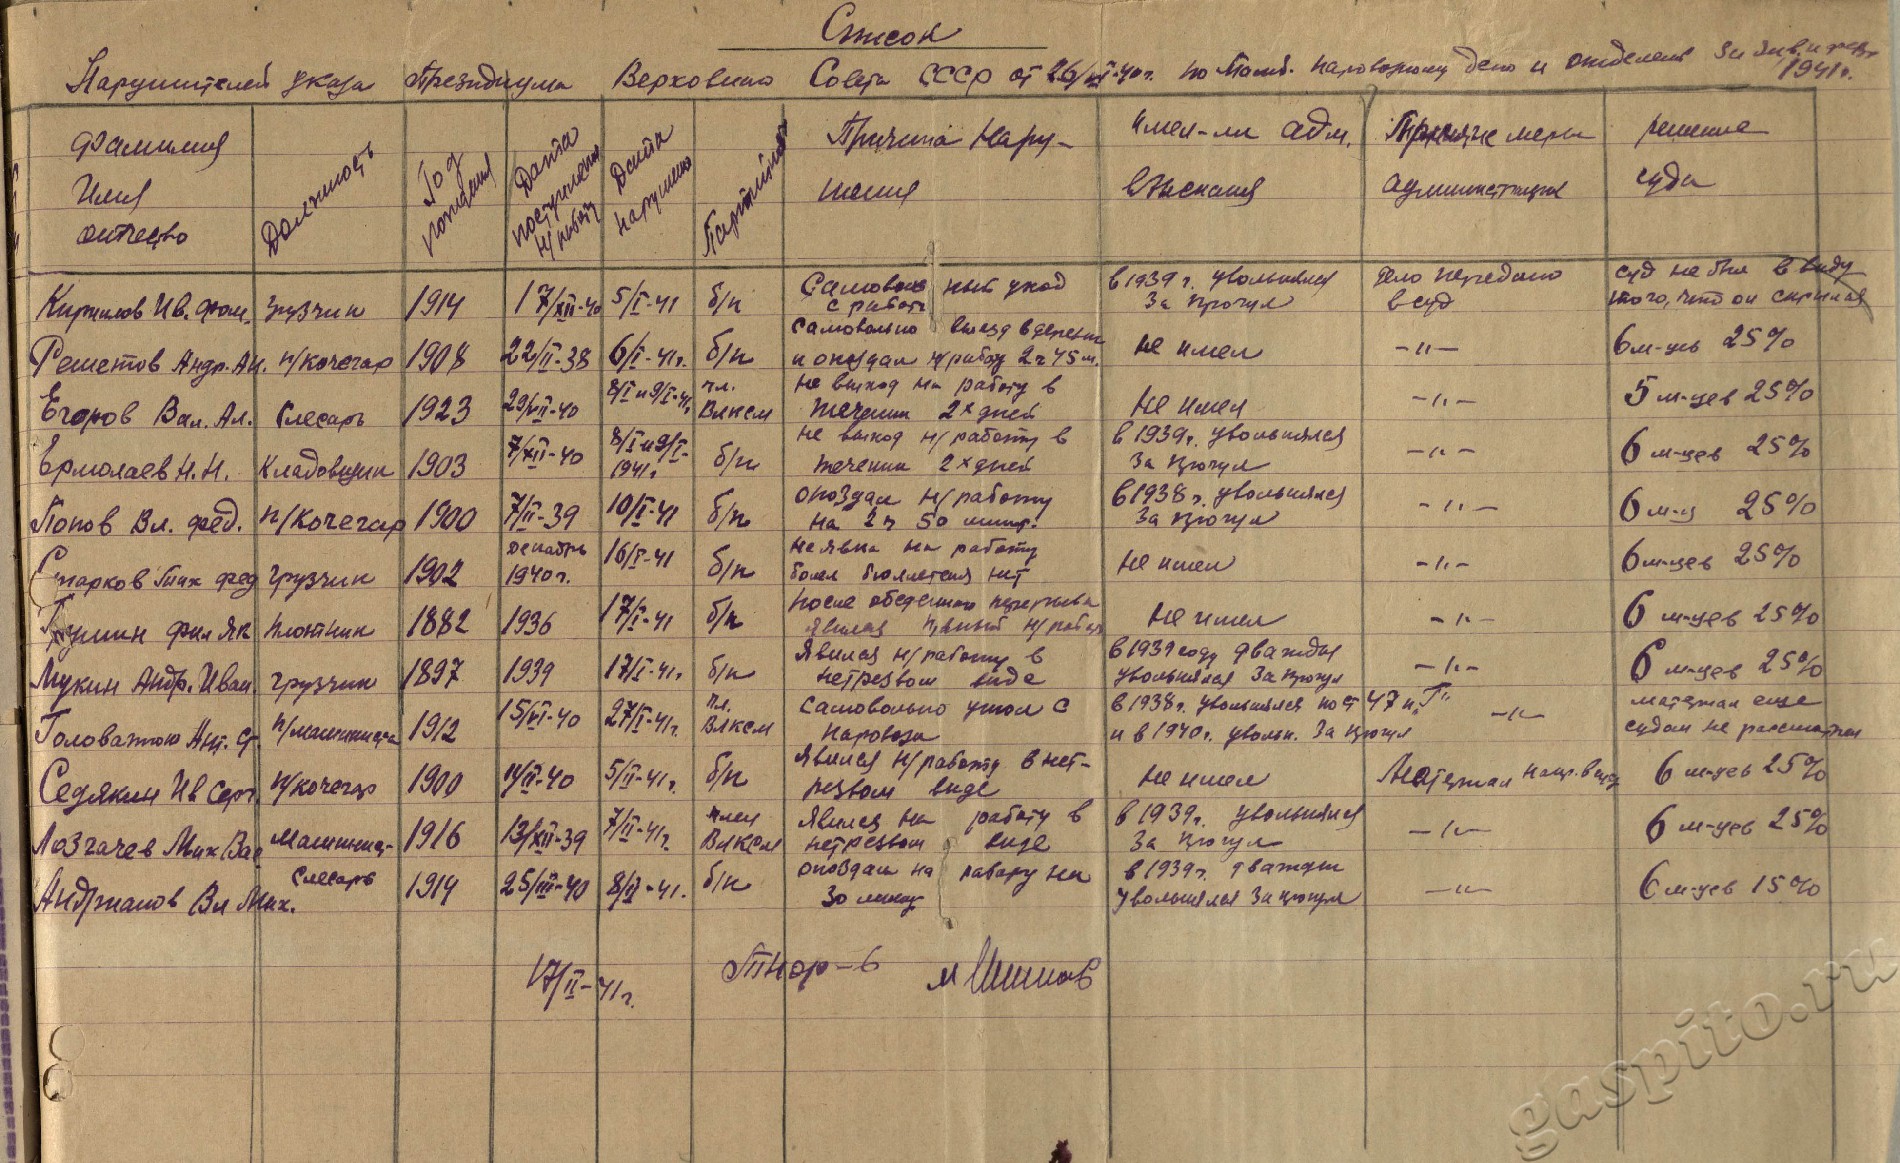 Список
Нарушителей указа Президиума Верховного Совета СССР от 26/VI-40г. по Тамб. паровозному депо и отделен. за янв. и февр.
1941г.
Фамилия Имя отчество
Должность
Год рождения
Дата поступления н/работу
Дата нарушения
Партийность
Причина Нарушения
Имел-ли адм. взыскания
Принятые меры администрацией
решение суда
Кирилов Ив. Фом. грузчик 1914 17/XII-40 5/I-41 б/п Самовольный уход с работы в 1939 г. увольнялся За прогул дело передано в суд суд не был в виду того, что он скрылся
Решетов Андр. Ан. п/кочегар 1908 22/II-38 6/I-41г. б/п самовольно выезд в деревню и опоздал н/работу 2ч 45 м. не имел -"- 6 м-цев 25%
Егоров Вал. Ал. Слесарь 1923 29/VII-40 8/I и 9/I-41г. чл. ВЛКСМ не выход на работу в течении 2х дней Не имел -"- 5 м-цев 25%
Ермолаев Н.Н. Кладовщик 1903 7/XII-40 8/I и 9/I-1941г. б/п не выход н/работу в течении 2х дней в 1939г. увольнялся За прогул -"- 6 м-цев 25%
Попов Вл. Фед. п/кочегар 1900 7/II-39 10/I-41 б/п опоздал н/работу на 2ч 50 минут. в 1938г. увольнялся За прогул -"- 6 м-ц 25%
Старков Тих Фед грузчик 1902 декабрь 1940г. 16/I-41 б/п Неявка на работу болел бюллетеня нет не имел -"- 6 м-цев 25%
Фил Як плотник 1882 1936 17/I-41 б/п после обеденного перерыва явился пьяный н/работу Не имел -"- 6 м-цев 25%
Мукин Андр. Иван. грузчик 1897 1939 17/I-41г. б/п Явился н/работу в нетрезвом виде в 1939 году дважды увольнялся За прогул -"- 6 м-цев 25%
Головатюк Ант. п/машиниста 1912 15/VI-40 27/I-41г. чл. ВЛКСМ самовольно ушол с паровоза в 1938г. увольнялся по ст 47 п. "Г" и в 1940г. увольн. За прогул -"- материал еще судом не рассмотрен
Седякин Ив Серг. п/кочегар 1900 5/II-41г. б/п явился н/работу в нетрезвом виде не имел Материал напр. в суд 6 м-цев 25%
Лозгачев Мих Вас машинист 1916 13/XII-39 7/II-41г. член ВЛКСМ явился на работу в нетрезвом виде в 1939г. увольнялся За прогул -"- 6 м-цев 25%
Андрианов Вл Мих. Слесарь 1914 25/III-40 8/II-41г. б/п опоздал на работу на 30 минут в 1939г. дважды увольнялся За прогул -"- 6 м-цев 15%
17/II-41г.
gaspito.ru